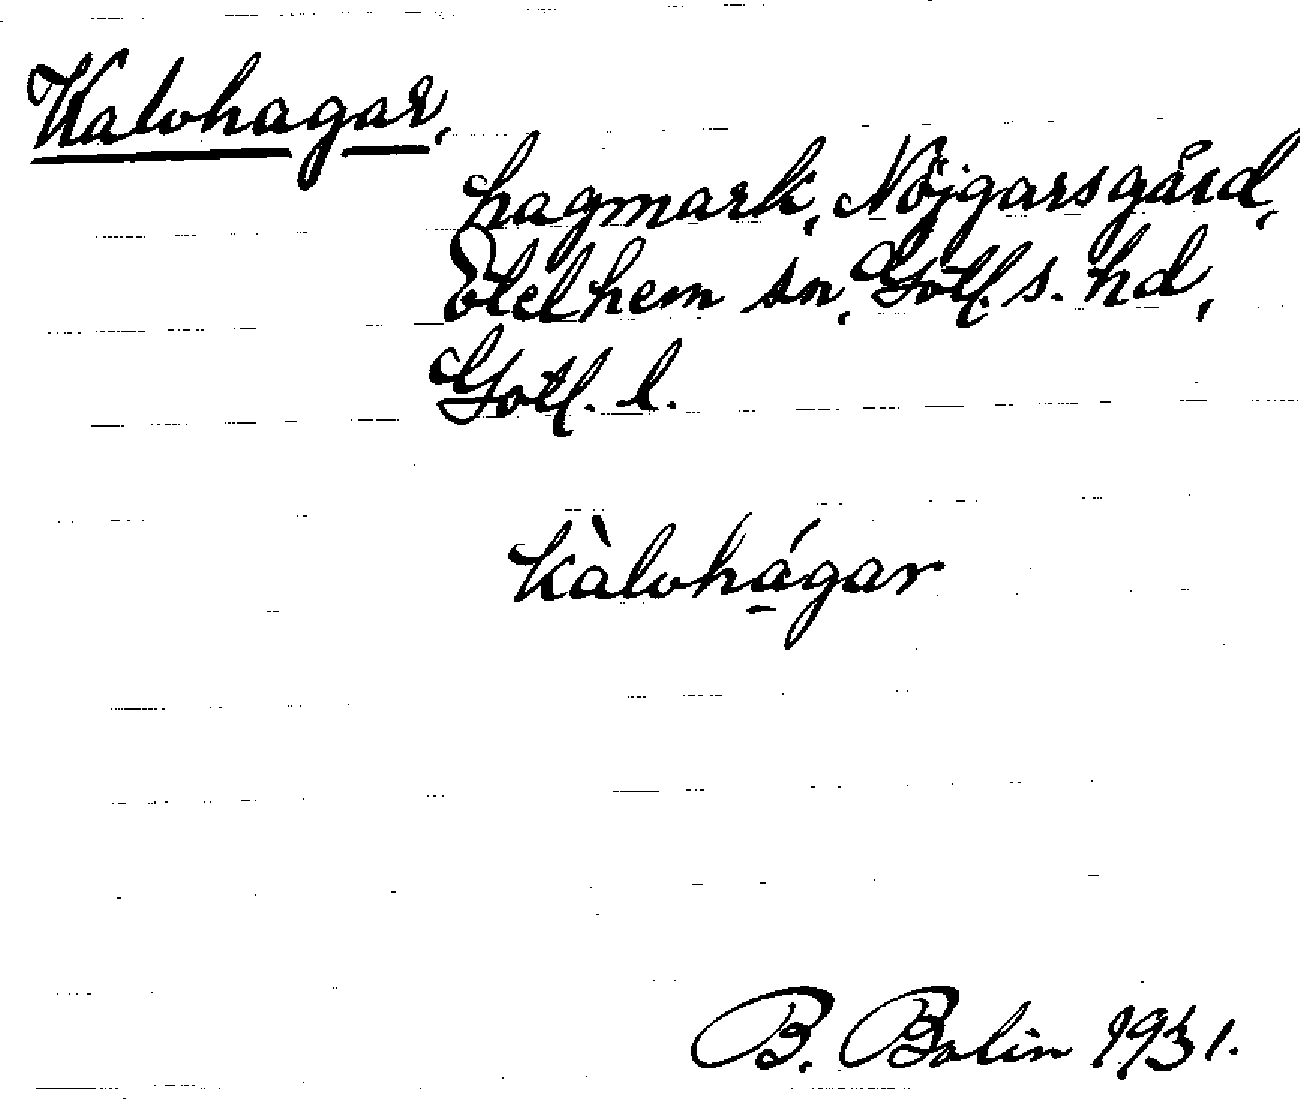 Kalvhagar,
hagmark, Nöjgarsgård,
Etelhem sn, Gotl. s. hd,
Gotl. l.
kàlvhá̱gar
B. Bolin 1931.